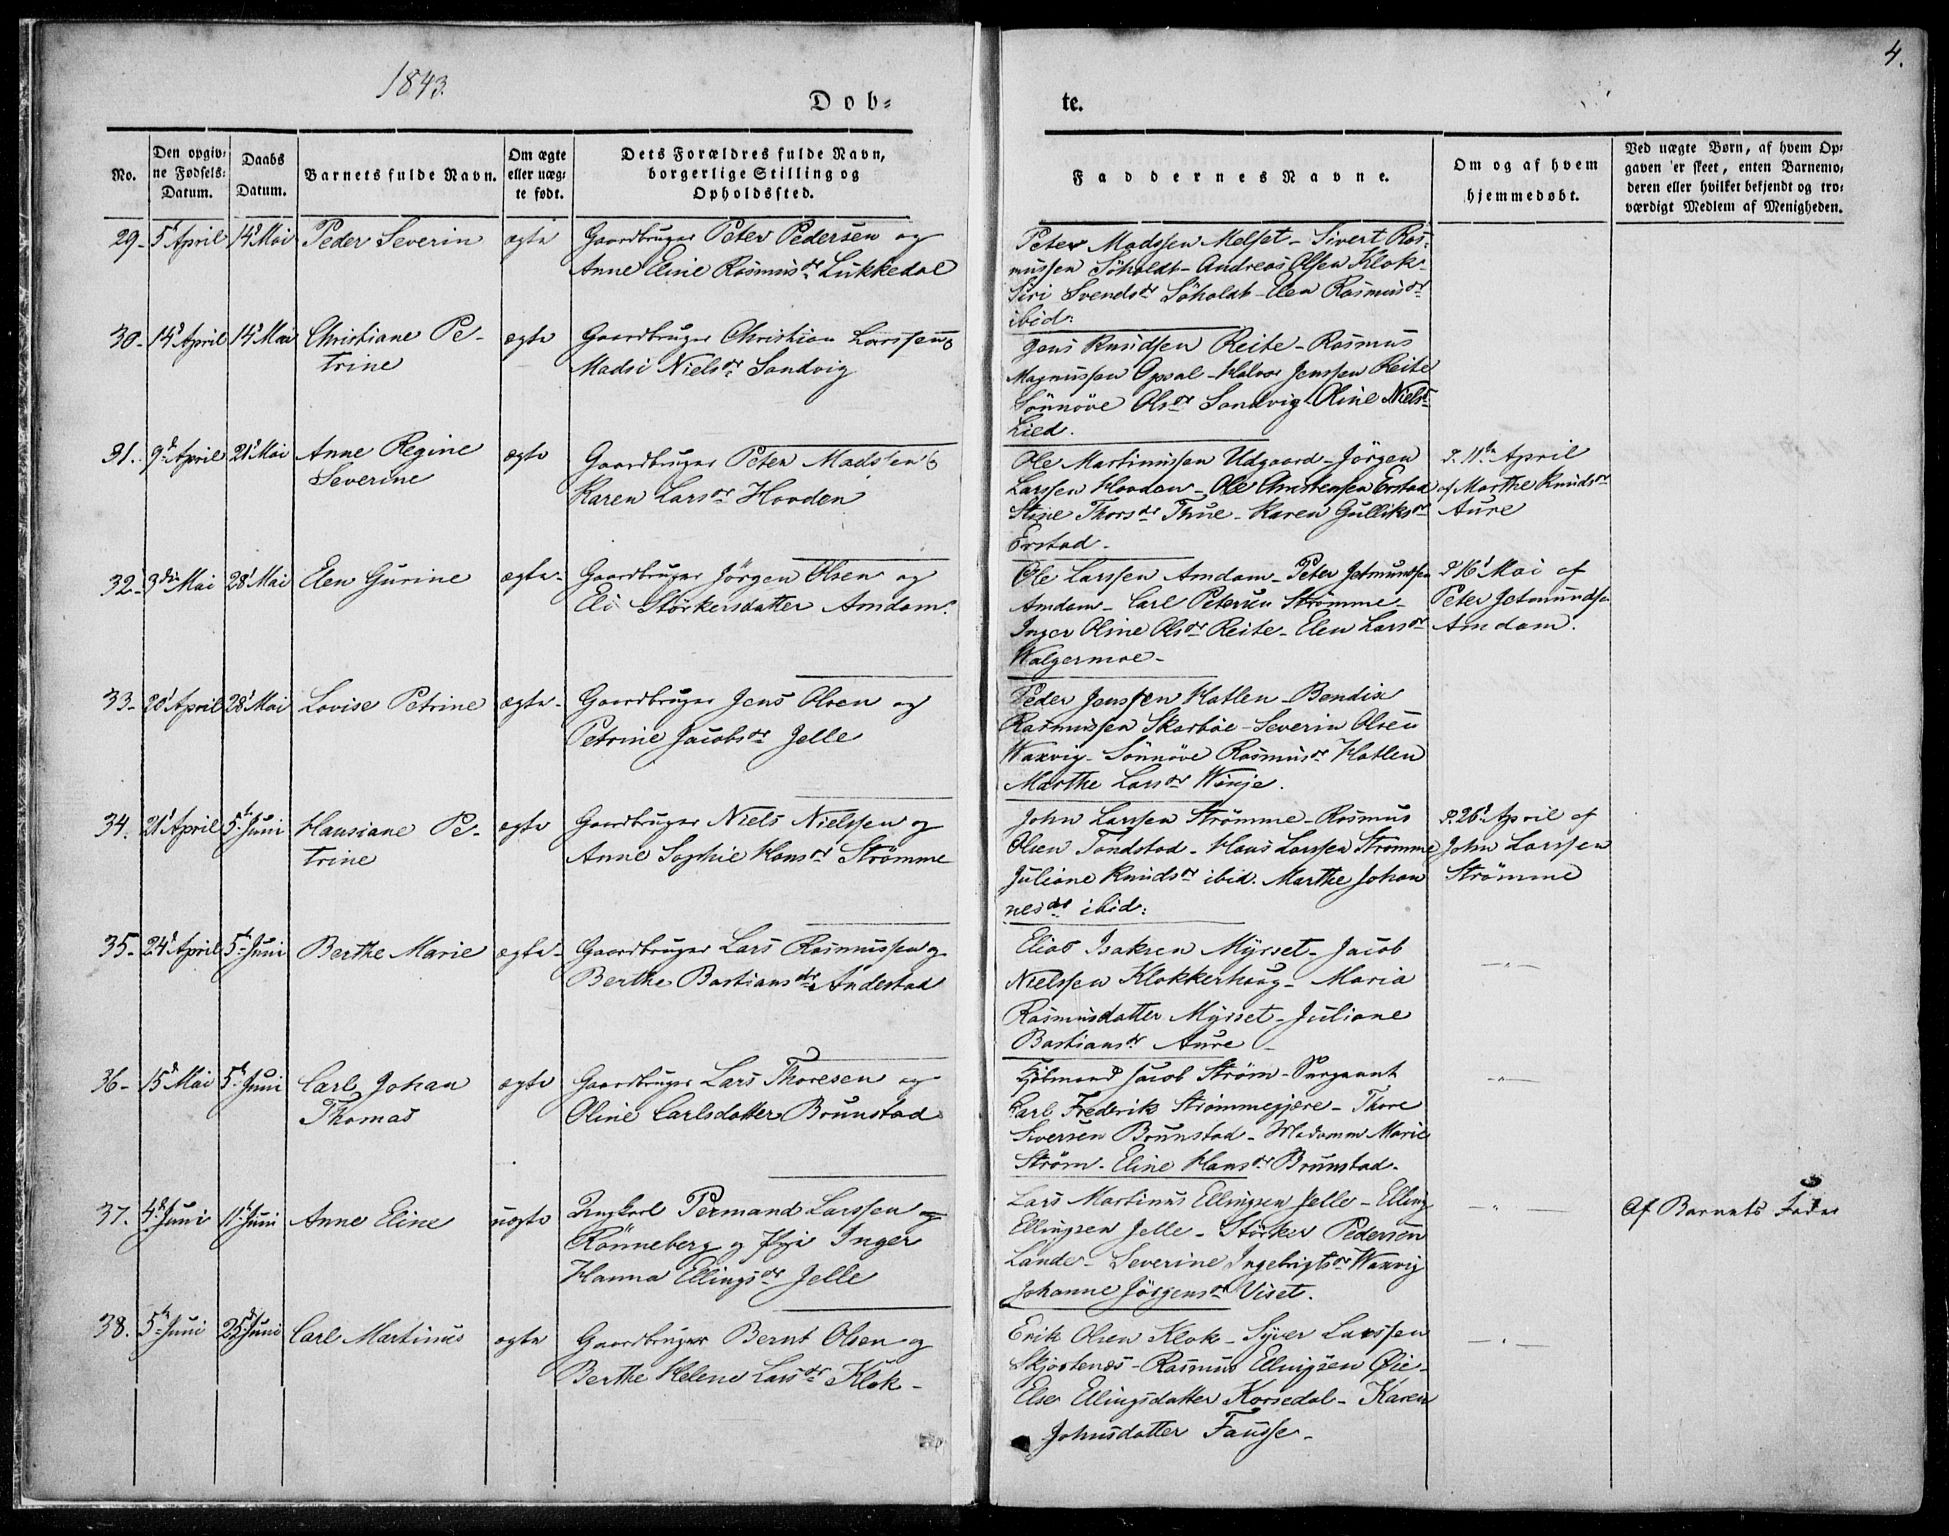 1843.
4.
Dob-
te.
No.
Den opgiv-
ne Fødsels-
Datum.
Daabs
Datum.
Barnets fulde Navn.
Om ægte
eller uæg-
te født.
Dets Forældres fulde Navn,
borgerlige Stilling og
Opholdssted.
Faddernes Navne.
Om og af hvem
hjemmedøbt.
Ved uægte Børn, af hvem Op-
gaven er skeet, enten Barnemo-
deren eller hvilket bekjendt og tro-
værdigt Medlem af Menigheden.
29- 5t April 14d Mai Peder Severin ægte Gaardbruger Peter Pedersen og
Anne Eline Rasmusdr Lukkedal
Peter Madssen Melset - Sivert Ras-
mussen Söholdt - Andreas Olsen Klok -
Siri Svendsdr Söholdt - Elen Rasmusdr
ibid:
30- 14d April 14d Mai Christiane Pe- ægte Gaardbruger Christian Larssen og
trine Madsi Nielsdr Sandvig
Jens Knudsen Reite - Rasmus
Magnussen Opsal - Halvor Jenssen Reite
Sönnöve Olsdr Sandvig - Oline Nielsdr
Lied.
31. 9d April 21d Mai Anne Regine ægte Gaardbruger Peter Madssen og
Severine Karen Larsdr Hovden
Ole Martinussen Udgaard - Jörgen
Larssen Hovden - Ole Christensen Erstad
Stine Thorsdr Thue - Karen Gulliksdr
Erstad -
d. 11te April
af Marthe Knudsdr
Aure
32- 3die Mai 28d Mai Elen Gurine ægte- Gaardbruger Jörgen Olsen og
Eli Störkersdatter Amdam.
Ole Larssen Amdam - Peter Jetmundsen
Amdam - Carl Petersen Strömme -
Inger Oline Olsdr Reite - Elen Larsdr
Walgermoe -
d 16d Mai af
Peter Jetmundsen
Amdam.
33- 20d April 28d Mai Lovise Petrine ægte- Gaardbruger Jens Olsen og
Petrine Jacobsdr Jelle
Peder Jenssen Hatlen - Bendix
Rasmussen Skarböe - Severin Olsen
Waxvig - Sönnöve Rasmusdr Hatlen
Marthe Larsdr Winje.
34. 21d April 5te Juni Hansiane Pe- ægte Gaardbruger Niels Nielssen og
trine Anne Sophie Hansdr Strömme
John Larssen Strömme - Rasmus
Olsen Tandstad - Hans Larssen Strömme
Juliane Knudsdr ibid. Marthe Johan
nesdr ibid:
d. 26d April af
John Larssen
Strömme
35- 24d April 5te Juni Berthe Marie ægte- Gaardbruger Lars Rasmussen og
Berthe Bastiansdr Andestad
Elias Isaksen Myrset - Jacob
Nielssen Klokkerhaug - Maria
Rasmusdatter Myrset - Juliane
Bastiansdr Aure -
- " -
36- 15d Mai 5te Juni Carl Johan ægte Gaardbruger Lars Thoresen og
Thomas Oline Carlsdatter Brunstad
Kjöbmand Jacob Ström - Sergeant
Carl Frederik Strömmegjære - Thore
Siversen Brunstad - Madamm Marie
Ström - Eline Hansdr Brunstad -
- " -
37. 4de Juni 11te Juni Anne Eline uægte Ungkarl Permand Larssen
Rönneberg og Pige Inger
Hanna Ellingsdr Jelle
Lars Martinus Ellingsen Jelle - Elling
Ellingsen Jelle - Störker Pedersen
Lande - Severine Ingebrigtsdr Waxvig
Johanne Jörgensdr Viset.
- " -
Af Barnets Fader
38. 5te Juni 25d Juni Carl Martinus ægte Gaardbruger Bernt Olsen og
Berthe Helene Larsdr Klok -
Erik Olsen Klok - Syver Larssen
Skjortenes - Rasmus Ellingsen Öie -
Else Ellingsdatter Korsedal - Karen
Johnsdatter Fausse -
- " -